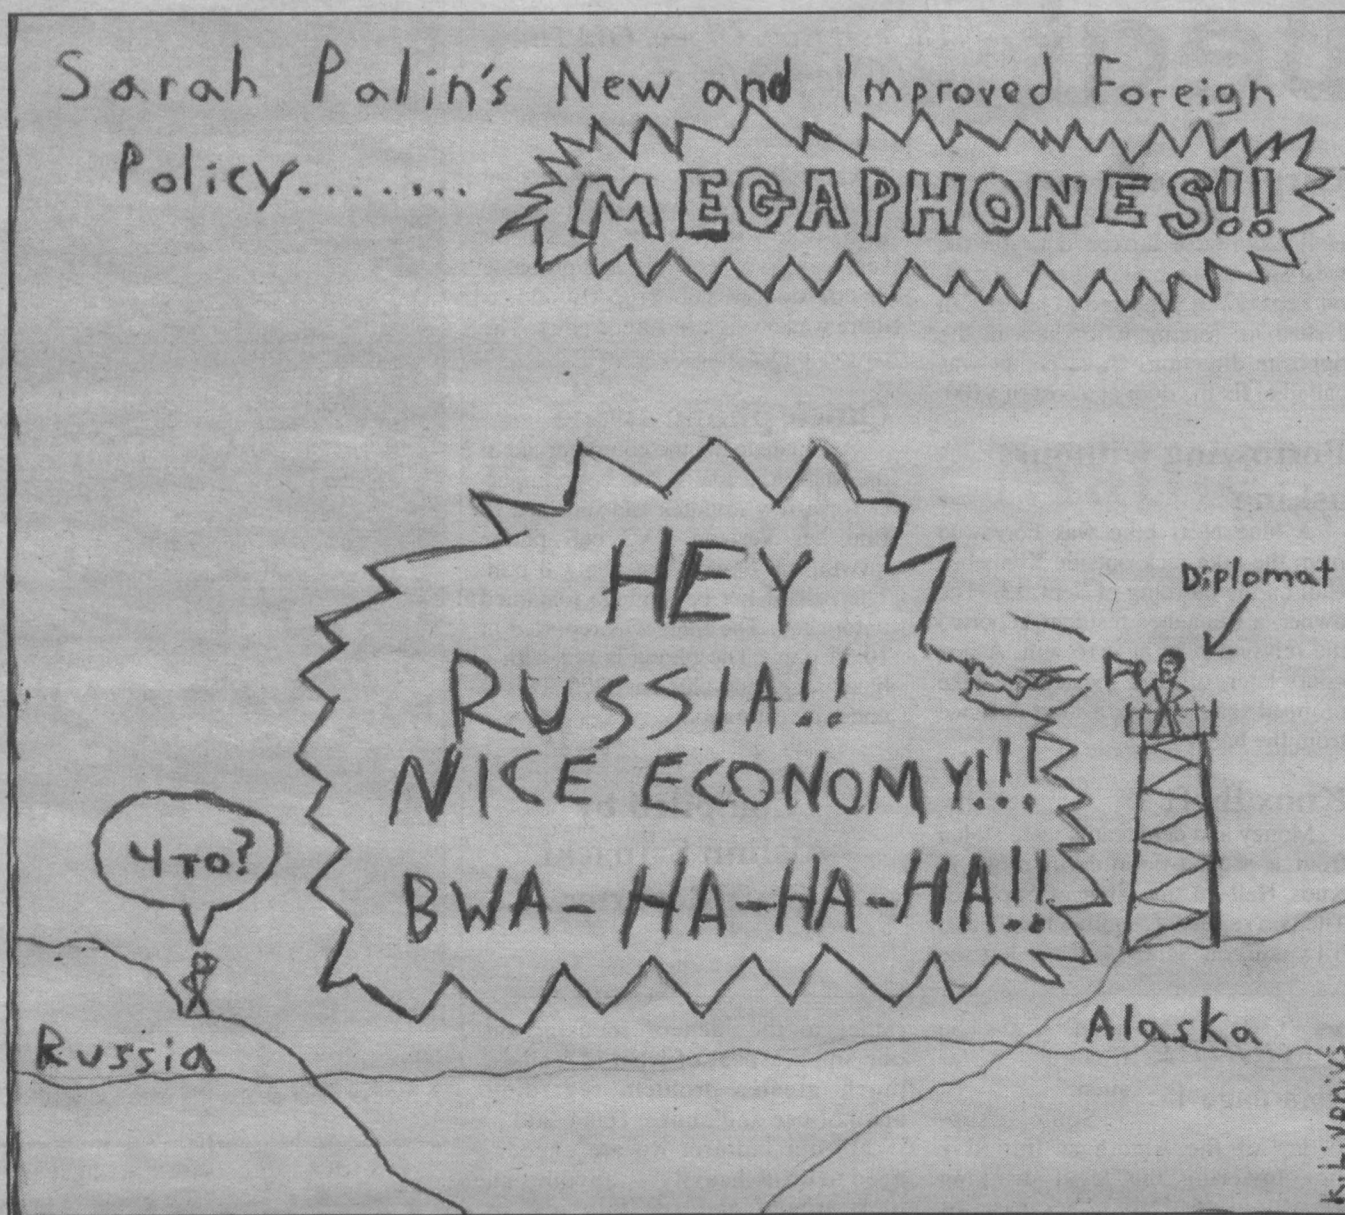 Sarah Palin's New and Improved Foreign
Policy.......
MEGAPHONES!!
HEY
RUSSIA!!
NICE ECONOMY!!!
BWA-HA-HA-HA!!
Diplomat
что?
Russia
Alaska